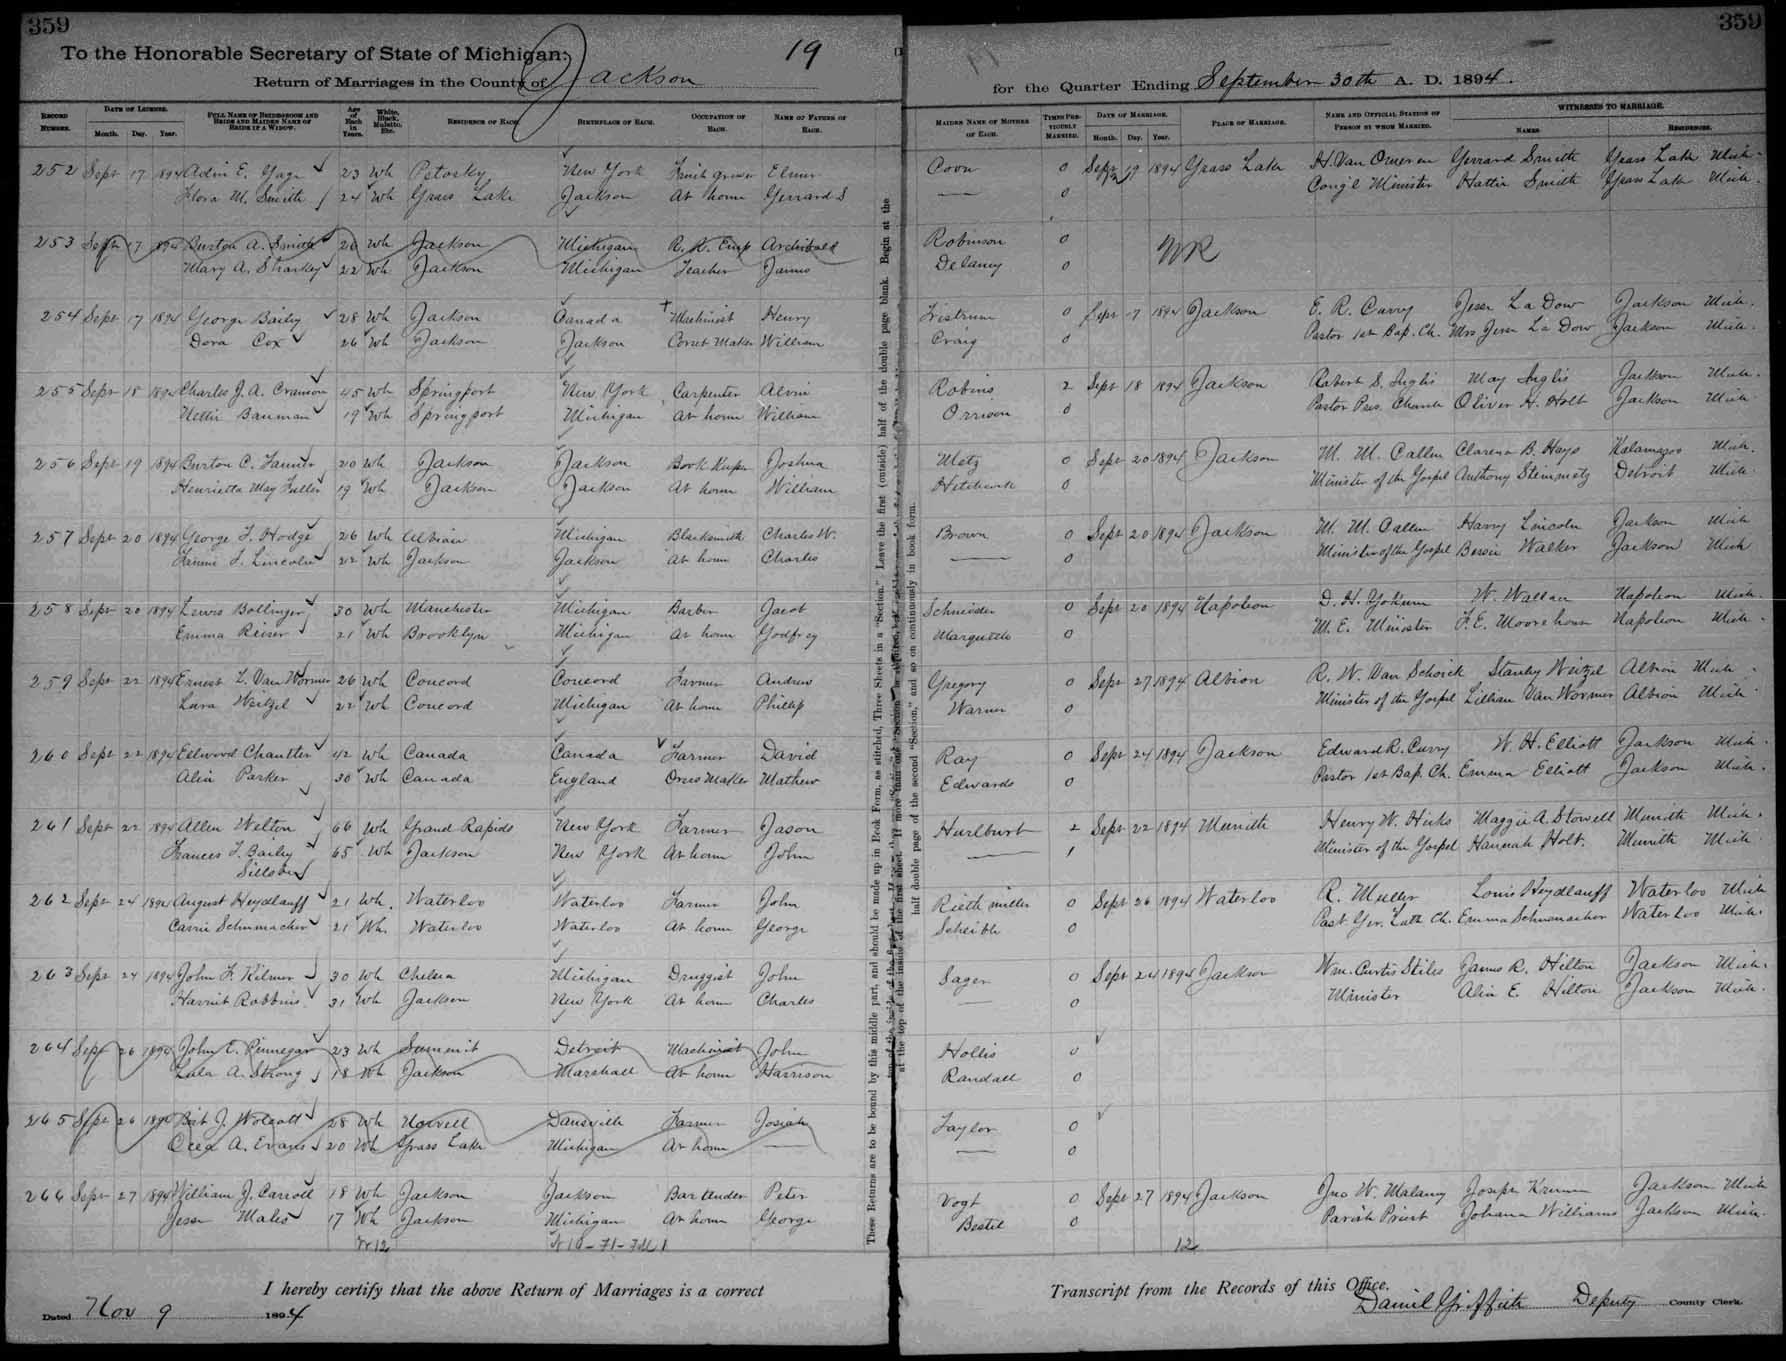 359
To the Honorable Secretary of State of Michigan:
19
Return of Marriages in the County of Jackson
RECORD NUMBER.
DATE OF LICENSE.
Month. Day. Year.
FULL NAME OF BRIDEGROOM AND BRIDE AND MAIDEN NAME OF BRIDE IF A WIDOW.
Age of Each in Years.
White, Black, Mulatto, Etc.
RESIDENCE OF EACH.
BIRTHPLACE OF EACH.
OCCUPATION OF EACH.
NAME OF FATHER OF EACH.
252 Sept 17 1894 Adin E. Gage 23 Wh Petosky New York Fruit grower Elmer
Flora M. Smith 24 Wh Grass Lake Jackson At home Gerrard S
253 Sept 17 1894 Burton A. Smith 26 Wh Jackson Michigan R. R. Emp Archibald
Mary A. Sharkey 22 Wh Jackson Michigan Teacher James
254 Sept 17 1894 George Baily 28 Wh Jackson Canada Machinist Henry
Dora Cox 26 Wh Jackson Jackson Corset Maker William
255 Sept 18 1894 Charles J. A. Cramon 45 Wh Springport New York Carpenter Alvin
Nettie Bauman 19 Wh Springport Michigan At home William
256 Sept 19 1894 Burton C. 20 Wh Jackson Jackson Book Keeper Joshua
Henrietta May Fuller 19 Wh Jackson Jackson At home William
257 Sept 20 1894 George F. Hodge 26 Wh Albion Michigan Blacksmith Charles W.
Fannie F. Lincoln 22 Wh Jackson Jackson At home Charles
258 Sept 20 1894 Lewis Bollinger 30 Wh Manchester Michigan Barber Jacob
Emma Reiser 21 Wh Brooklyn Michigan At home Godfrey
259 Sept 22 1894 Ernest L. Van Wormer 26 Wh Concord Concord Farmer Andrew
Lura Weitzel 22 Wh Concord Michigan At home Phillip
260 Sept 22 1894 Ellwood Chantler 42 Wh Canada Canada Farmer David
Alice Parker 30 Wh Canada England Dress Maker Mathew
261 Sept 22 1894 Allen Welton 66 Wh Grand Rapids New York Farmer Jason
Frances F. Bailey 65 Wh Jackson New York At home John
Sillsbury
262 Sept 24 1894 August Heydlauff 21 Wh. Waterloo Waterloo Farmer John
Carrie Schumacher 21 Wh. Waterloo Waterloo At home George
263 Sept 24 1894 John F. Kilmer 30 Wh Chelsea Michigan Druggist John
Harriet Robbins 31 Wh Jackson New York At home Charles
264 Sept 26 1894 John E. Pinnegar 23 Wh Summit Detroit Machinist John
Lula A. Strong 18 Wh Jackson Marshall At home Harrison
265 Sept 26 1894 Bert J. Wolcott 28 Wh Norvell Dansville Farmer Josiah
Ocea A. Evans 20 Wh Grass Lake Michigan At home —
266 Sept 27 1894 William J. Carroll 18 Wh Jackson Jackson Bar tender Peter
Jesse Males 17 Wh Jackson Michigan At home George
W12
I hereby certify that the above Return of Marriages is a correct
Dated Nov 9 1894
These Returns are to be bound by this middle part, and should be made up in Book Form, as stitched, Three Sheets in a "Section." Leave the first (outside) half of the double page blank. Begin at the
half double page of the second "Section," and so on continuously in book form.
359
for the Quarter Ending September 30th A. D. 1894.
MAIDEN NAME OF MOTHER OF EACH.
TIMES PREVIOUSLY MARRIED.
DATE OF MARRIAGE.
Month. Day. Year.
PLACE OF MARRIAGE.
NAME AND OFFICIAL STATION OF PERSON BY WHOM MARRIED.
WITNESSES TO MARRIAGE.
NAMES.
RESIDENCES.
Coon 0 Sept 19 1894 Grass Lake H. Van Ommeren Gerrard Smith Grass Lake Mich.
— 0 Cong'l Minister Hattie Smith Grass Lake Mich.
Robinson 0 NR
Delaney 0
0 Sept 17 1894 Jackson E. R. Curry Jesse La Dow Jackson Mich.
Craig 0 Pastor 1st Bap. Ch. Mrs Jesse La Dow Jackson Mich.
Robins 2 Sept 18 1894 Jackson Robert S. Inglis May Inglis Jackson Mich.
Orrison 0 Pastor Pres. Church Oliver H. Holt Jackson Mich
Metz 0 Sept 20 1894 Jackson M. M. Callen Clarence B. Hays Kalamazoo Mich.
Hitchcock 0 Minister of the Gospel Anthony Steinmetz Detroit Mich.
Brown 0 Sept 20 1894 Jackson M. M. Callen Harry Lincoln Jackson Mich
— 0 Minister of the Gospel Bessie Walker Jackson Mich
Schneider 0 Sept 20 1894 Napoleon D. H. Yokum W. Wallace Napoleon Mich.
Marquette 0 M. E. Minister F. E. Moorehouse Napoleon Mich.
Gregory 0 Sept 27 1894 Albion R. W. Van Schoick Stanley Weitzel Albion Mich.
Warner 0 Minister of the Gospel Lillian Van Wormer Albion Mich.
Ray 0 Sept 24 1894 Jackson Edward R. Curry W. H. Elliott Jackson Mich.
Edwards 0 Pastor 1st Bap. Ch. Emma Elliott Jackson Mich.
Hurlburt 2 Sept 22 1894 Munith Henry W. Hicks Maggie A. Stowell Munith Mich.
— 1 Minister of the Gospel Hannah Holt. Munith Mich
Riethmiller 0 Sept 26 1894 Waterloo R. Mueller Louis Heydlauff Waterloo Mich
Scheible 0 Past. Ger. Luth Ch. Emma Schumacher Waterloo Mich.
Sager 0 Sept 24 1894 Jackson Wm. Curtis Stiles James R. Hilton Jackson Mich.
— 0 Minister Alice E. Hilton Jackson Mich.
Hollis 0
Randall 0
Taylor 0
— 0
Vogt 0 Sept 27 1894 Jackson Jno W. Malany Joseph Jackson Mich
Bestel 0 Parish Priest Johana Williams Jackson Mich.
12
Transcript from the Records of this Office.
Daniel Griffith Deputy County Clerk.